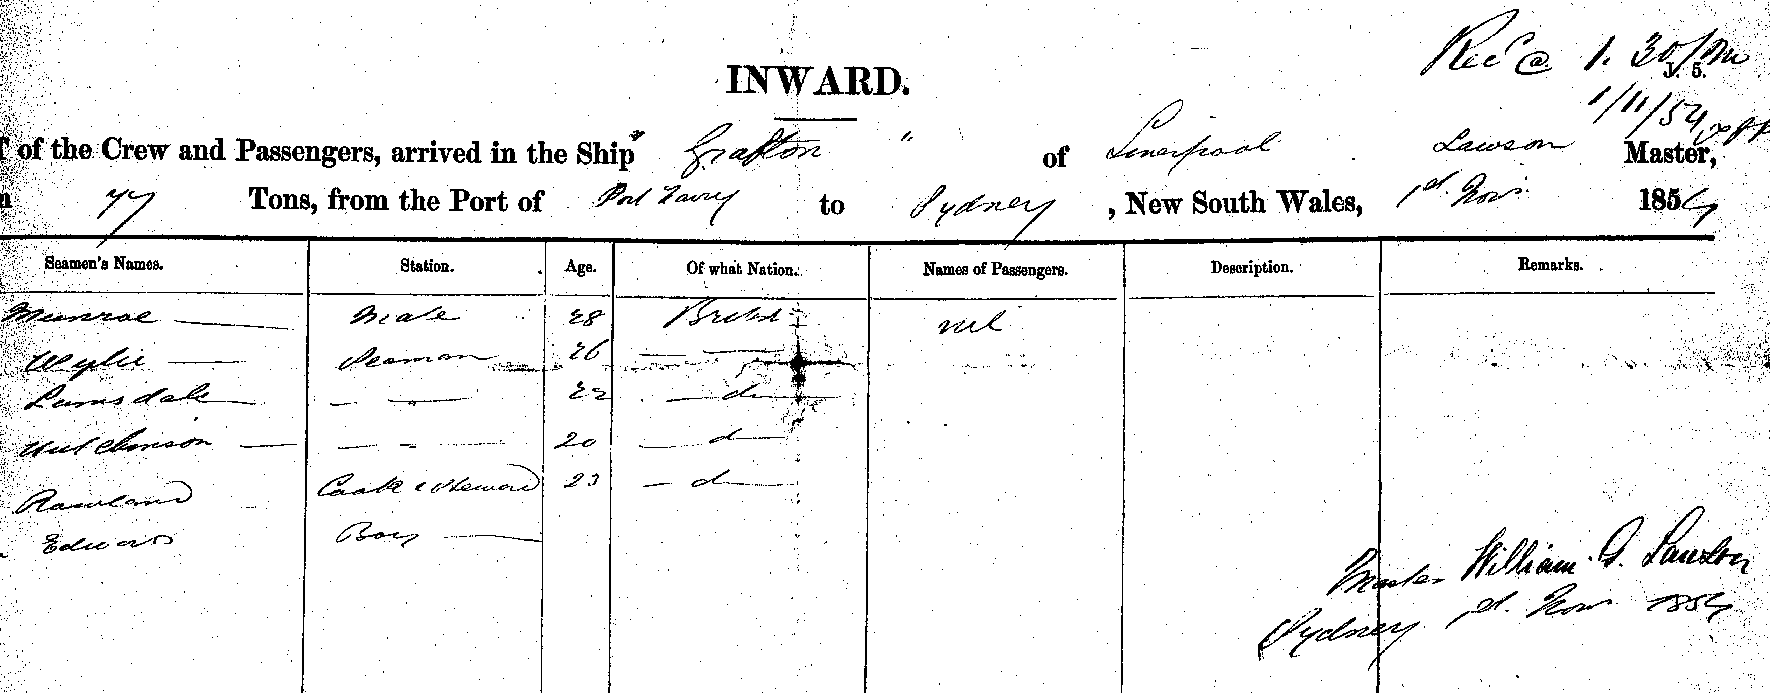 Recd @ 1.30 pm
J. S.
1/11/54
INWARD.
of the Crew and Passengers, arrived in the Ship "Grafton" of Liverpool Lawson Master,
77 Tons, from the Port of Port Fairy to Sydney, New South Wales, 1st. Novr. 1854
Seamen's Names. Station. Age. Of what Nation. Names of Passengers. Description. Remarks.
Munroe Mate 28 British nil
Wylie Seaman 26
Lumsdale — " — 22 — d —
Hutchinson — " — 20 — d —
Rowland Cook & Steward 23 — d —
Edward Boy
Master William G. Lawson
Sydney 1st. Novr 1854